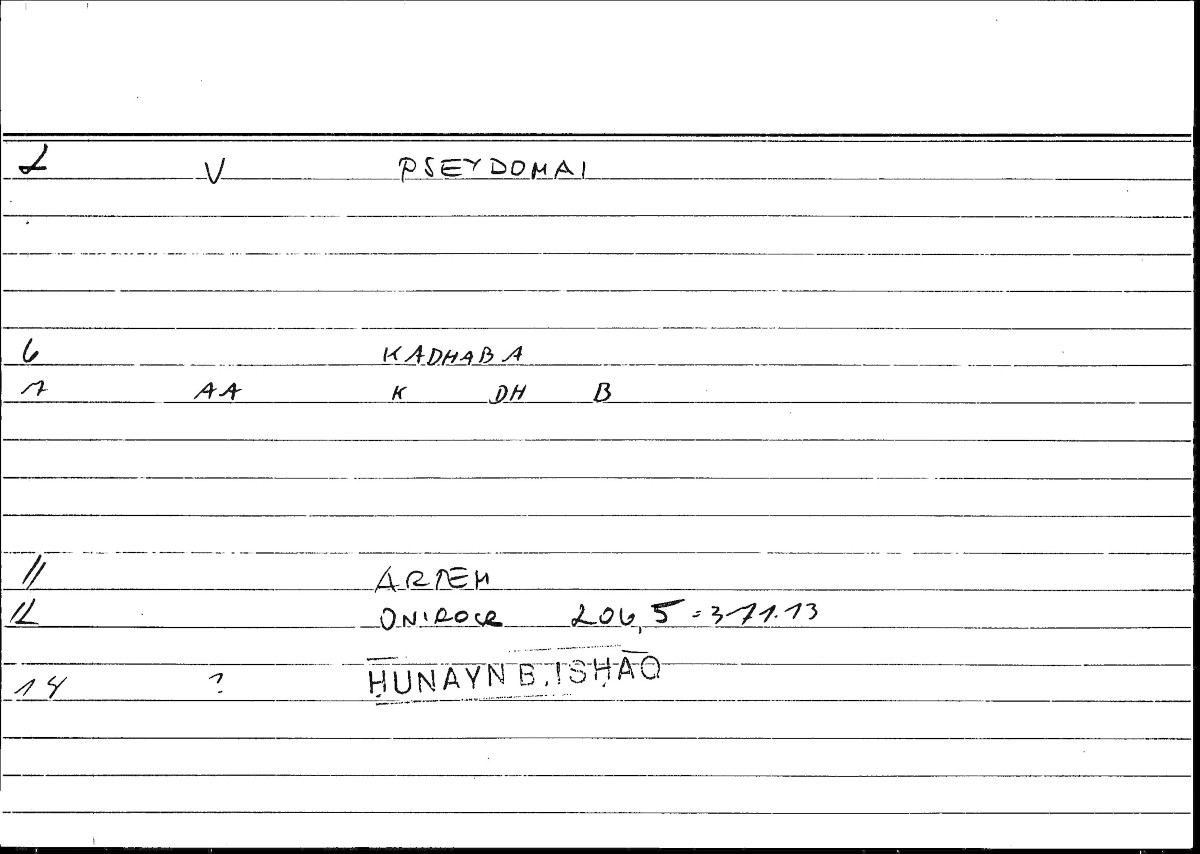 2 V PSEYDOMAI
6 KADHABA
7 AA K DH B
11 ARTEM
12 ONIROCR 206,5 = 371.13
14 ? ḤUNAYN B. ISḤĀQ